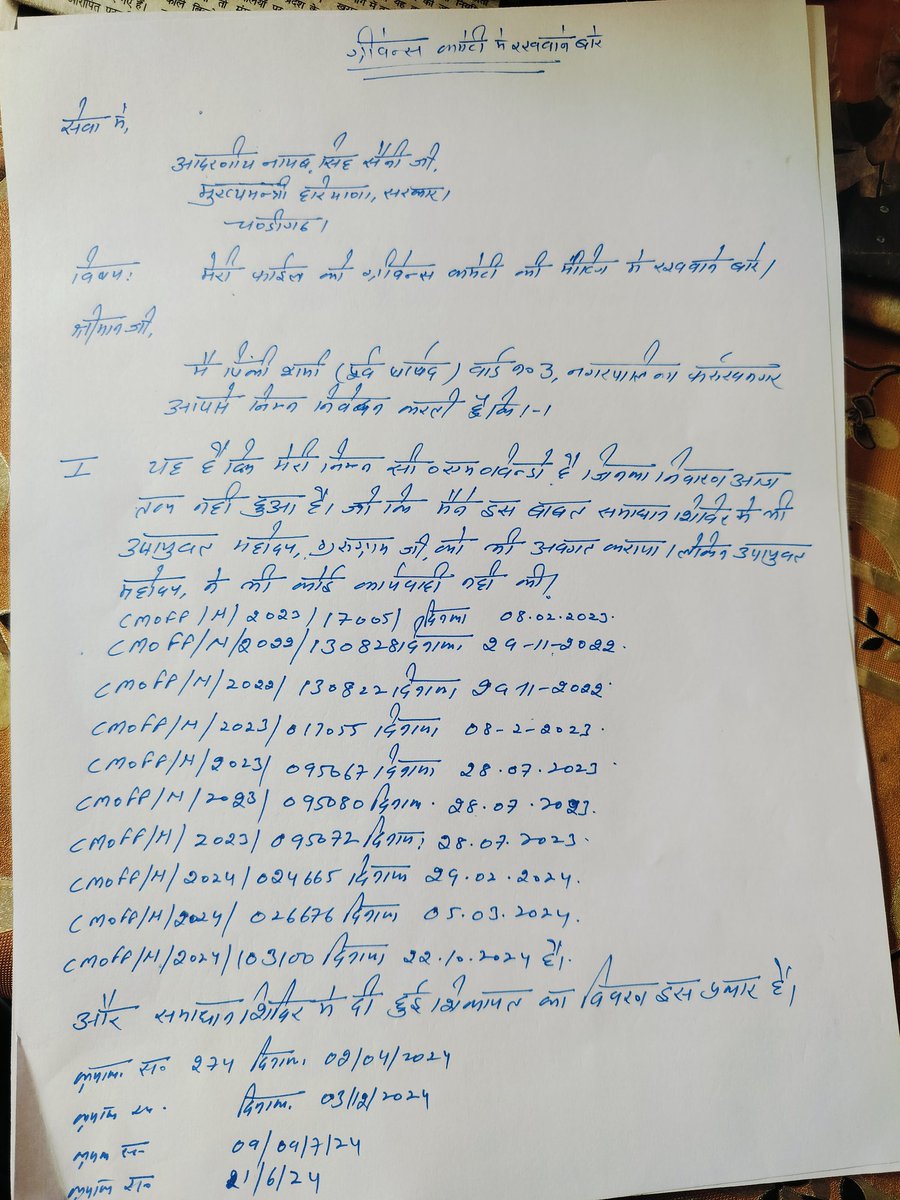 ग्रीवेन्स कमेटी मे रखवाने बारे
सेवा मे,
आदरणीय नायब सिंह सैनी जी,
मुख्यमन्त्री हरियाणा, सरकार।
चण्डीगढ।
विषय: मेरी फाईल को ग्रीवेन्स कमेटी की मीटिंग मे रखवाने बारे।
श्रीमान जी,
मै पिंकी शर्मा (पूर्व पार्षद) वार्ड न० 3, नगरपालिका फर्रुखनगर
आपसे निम्न निवेदन करती हूँ कि।-।
I यह है कि मेरी निम्न सी०एम०विन्डो है जिनका निवारण आज
तक नही हुआ है। जो कि मैने इस बाबत समाधान शिविर मे भी
उपायुक्त महोदय, गुरुग्राम जी, को भी अवगत कराया। लेकिन उपायुक्त
महोदय, ने भी कोई कार्यवाही नही की।
CMOFF/N/2023/17005/ दिनांक 08.02.2023.
CMOFF/N/2022/130828 दिनांक 29-11-2022.
CMOFF/N/2022/130822 दिनांक 29 11-2022
CMOFF/N/2023/017055 दिनांक 08-2-2023.
CMOFF/N/2023/095067 दिनांक 28.07.2023.
CMOFF/N/2023/095080 दिनांक. 28.07.2023.
CMOFF/N/2023/095072 दिनांक, 28.07.2023.
CMOFF/N/2024/024665 दिनांक 29.02.2024.
CMOFF/N/2024/026676 दिनांक 05.03.2024.
CMOFF/N/2024/103100 दिनांक 22.10.2024 है।
और समाधान शिविर मे दी हुई शिकायत का विवरण इस प्रकार है।
क्रमांक सं० 274 दिनांक 02/04/2024
क्रमांक सं० दिनांक 03/12/2024
क्रमांक सं० 09/09/7/24
क्रमांक सं० 21/6/24